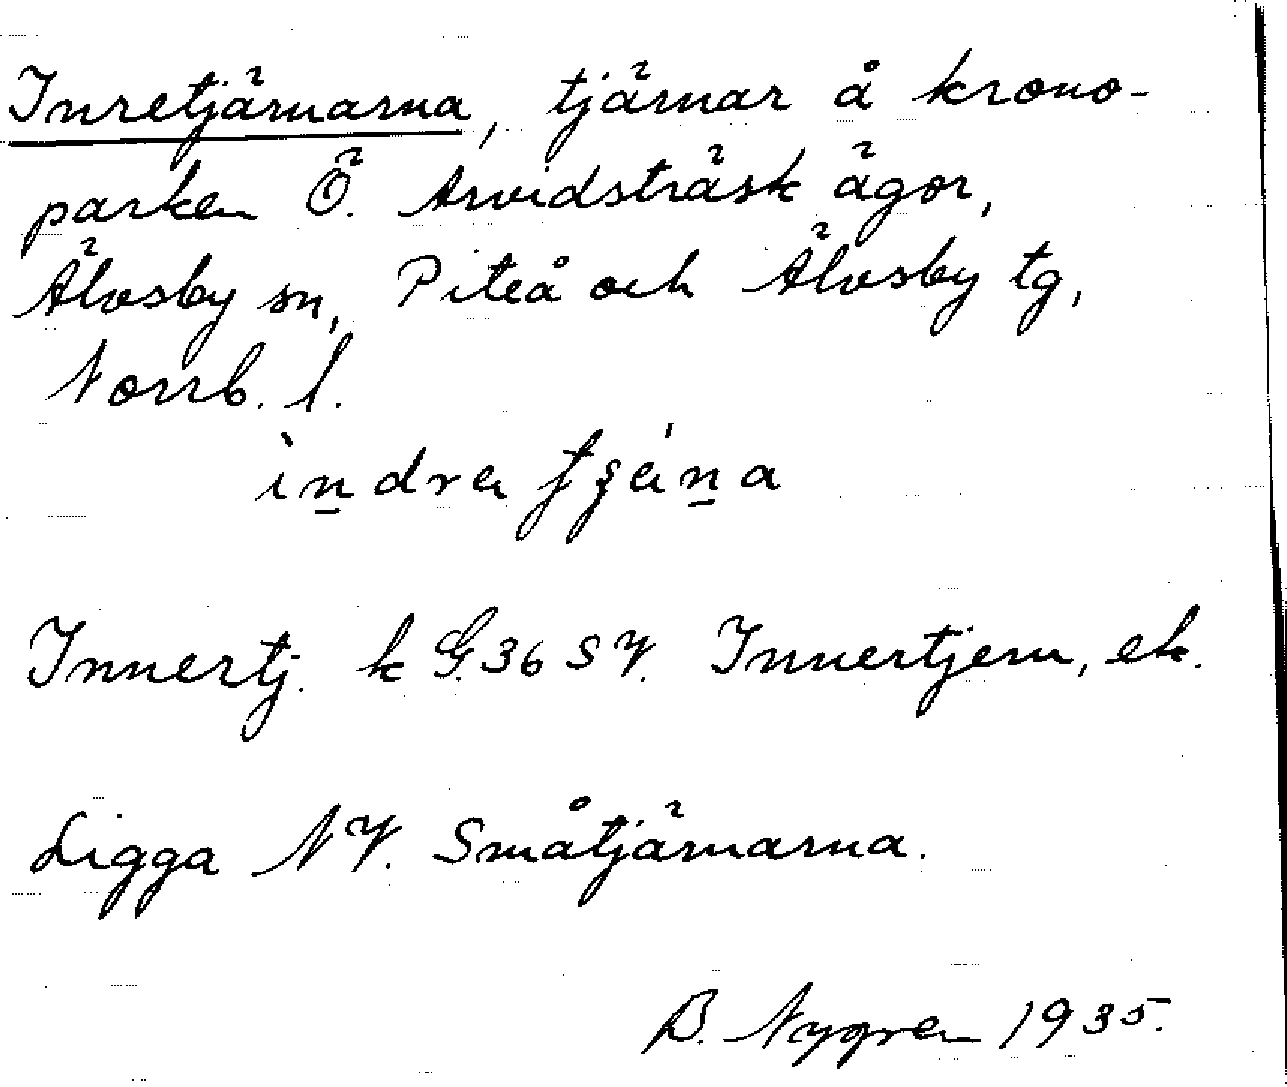 Inretjärnarna, tjärnar å krono-
parken Ö. Arvidsträsk ägor,
Älvsby sn, Piteå och Älvsby tg,
Norrb. l.
ìndra
Innertj. k G.36 SV. Innertjern, ek.
Ligga NV. Småtjärnarna.
B. Nygren 1935.